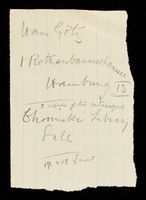 Hans Götz
1 Rothenbaumchaussee
Hamburg 13
2 copies of the catalogue
Chomski Library
Sale
17 + 18 June